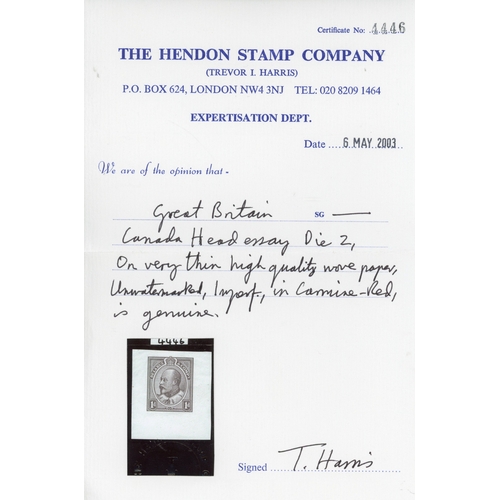 Certificate No: 4446
THE HENDON STAMP COMPANY
(TREVOR I. HARRIS)
P.O. BOX 624, LONDON NW4 3NJ TEL: 020 8209 1464
EXPERTISATION DEPT.
Date 6 MAY 2003
We are of the opinion that -
Great Britain SG —
Canada Head essay Die 2,
On very thin high quality wove paper,
Unwatermarked, Imperf., in Carmine-Red,
is genuine.
4446
Signed T. Harris